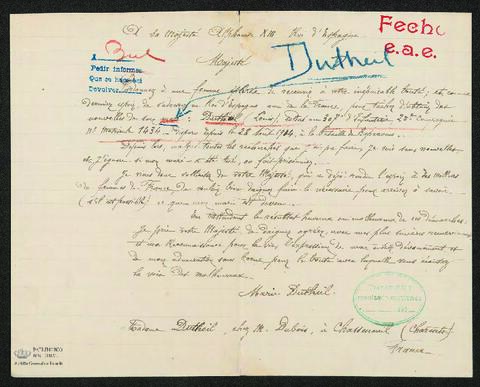 A Sa Majesté Alphonse XIII Roi d'Espagne
Fecho
e.a.e.
Dutheil
Majesté
Pedir informes
Que se haga así
Devolver
à une femme de recourir à votre inépuisable bonté, et comme
dernier espoir, de Roi d'Espagne ami de la France, pour d'obtenir des
nouvelles de son mari Dutheil Louis, au 307e d'Infanterie 22e Compagnie
No Matricule 1434 disparu depuis le 28 Août 1914, à la bataille de
Depuis lors, malgré toutes les recherches que j'ai pu faire, je suis sans nouvelles
et j'ignore si mon mari a été tué, ou fait prisonnier.
Je viens donc solliciter de votre Majesté, qui a déjà rendu l'espoir à des milliers
de femmes de France de vouloir bien daigner faire le nécessaire pour arriver à savoir
(s'il est possible) ce que mon mari est devenu.
En attendant le résultat heureux ou malheureux de ces démarches,
je prie votre Majesté de daigner agréer, avec mes plus sincères remerciements
et ma reconnaissance pour la vie, l'expression de mon dévouement et
de mon admiration sans borne pour la bonté avec laquelle vous écoutez
la voix des malheureux.
Marie Dutheil
Madame Dutheil, chez M. Dubois, à Chasseneuil (Charente)
France
PATRIMONIO
NACIONAL